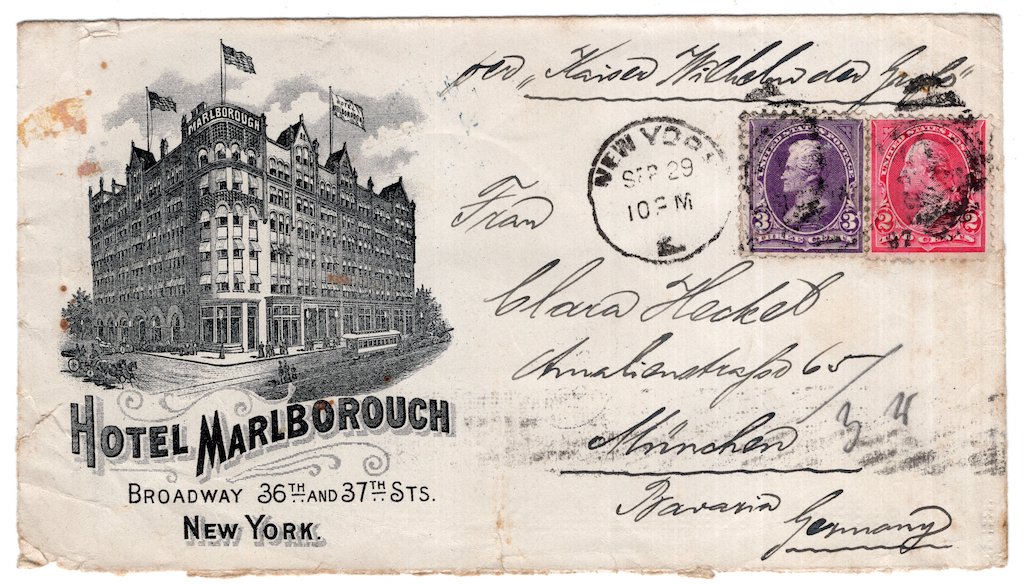 per "Kaiser Wilhelm der Große"
MARLBOROUGH
HOTEL
NEW YORK
SEP 29
10 PM
K.
UNITED STATES POSTAGE
3 3
THREE CENTS
UNITED STATES POS
2 2
CENTS
97
Frau
Clara Heckel
Amalienstraße 65/
München
3 4
Bavaria
Germany
HOTEL MARLBOROUGH
BROADWAY 36TH AND 37TH STS.
NEW YORK.